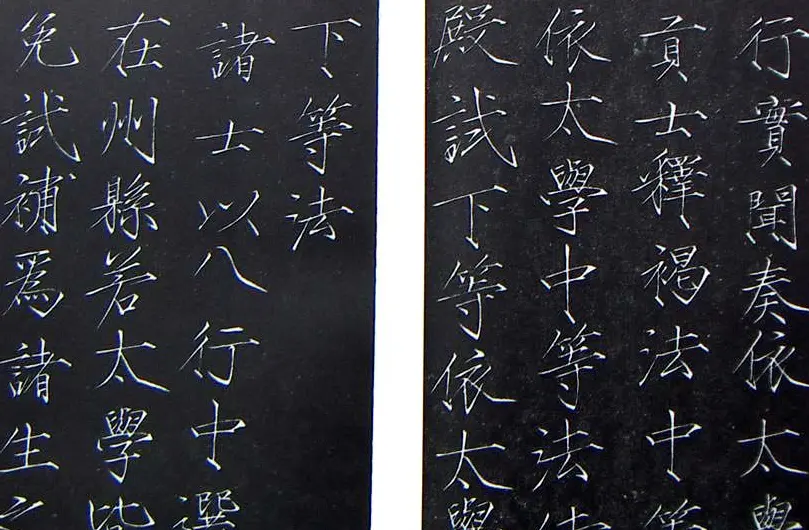 行實聞奏依太學
貢士釋褐法中等
依太學中等法
殿試下等依太學
下等法
諸士以八行中選
在州縣若太學皆
免試補爲諸生之